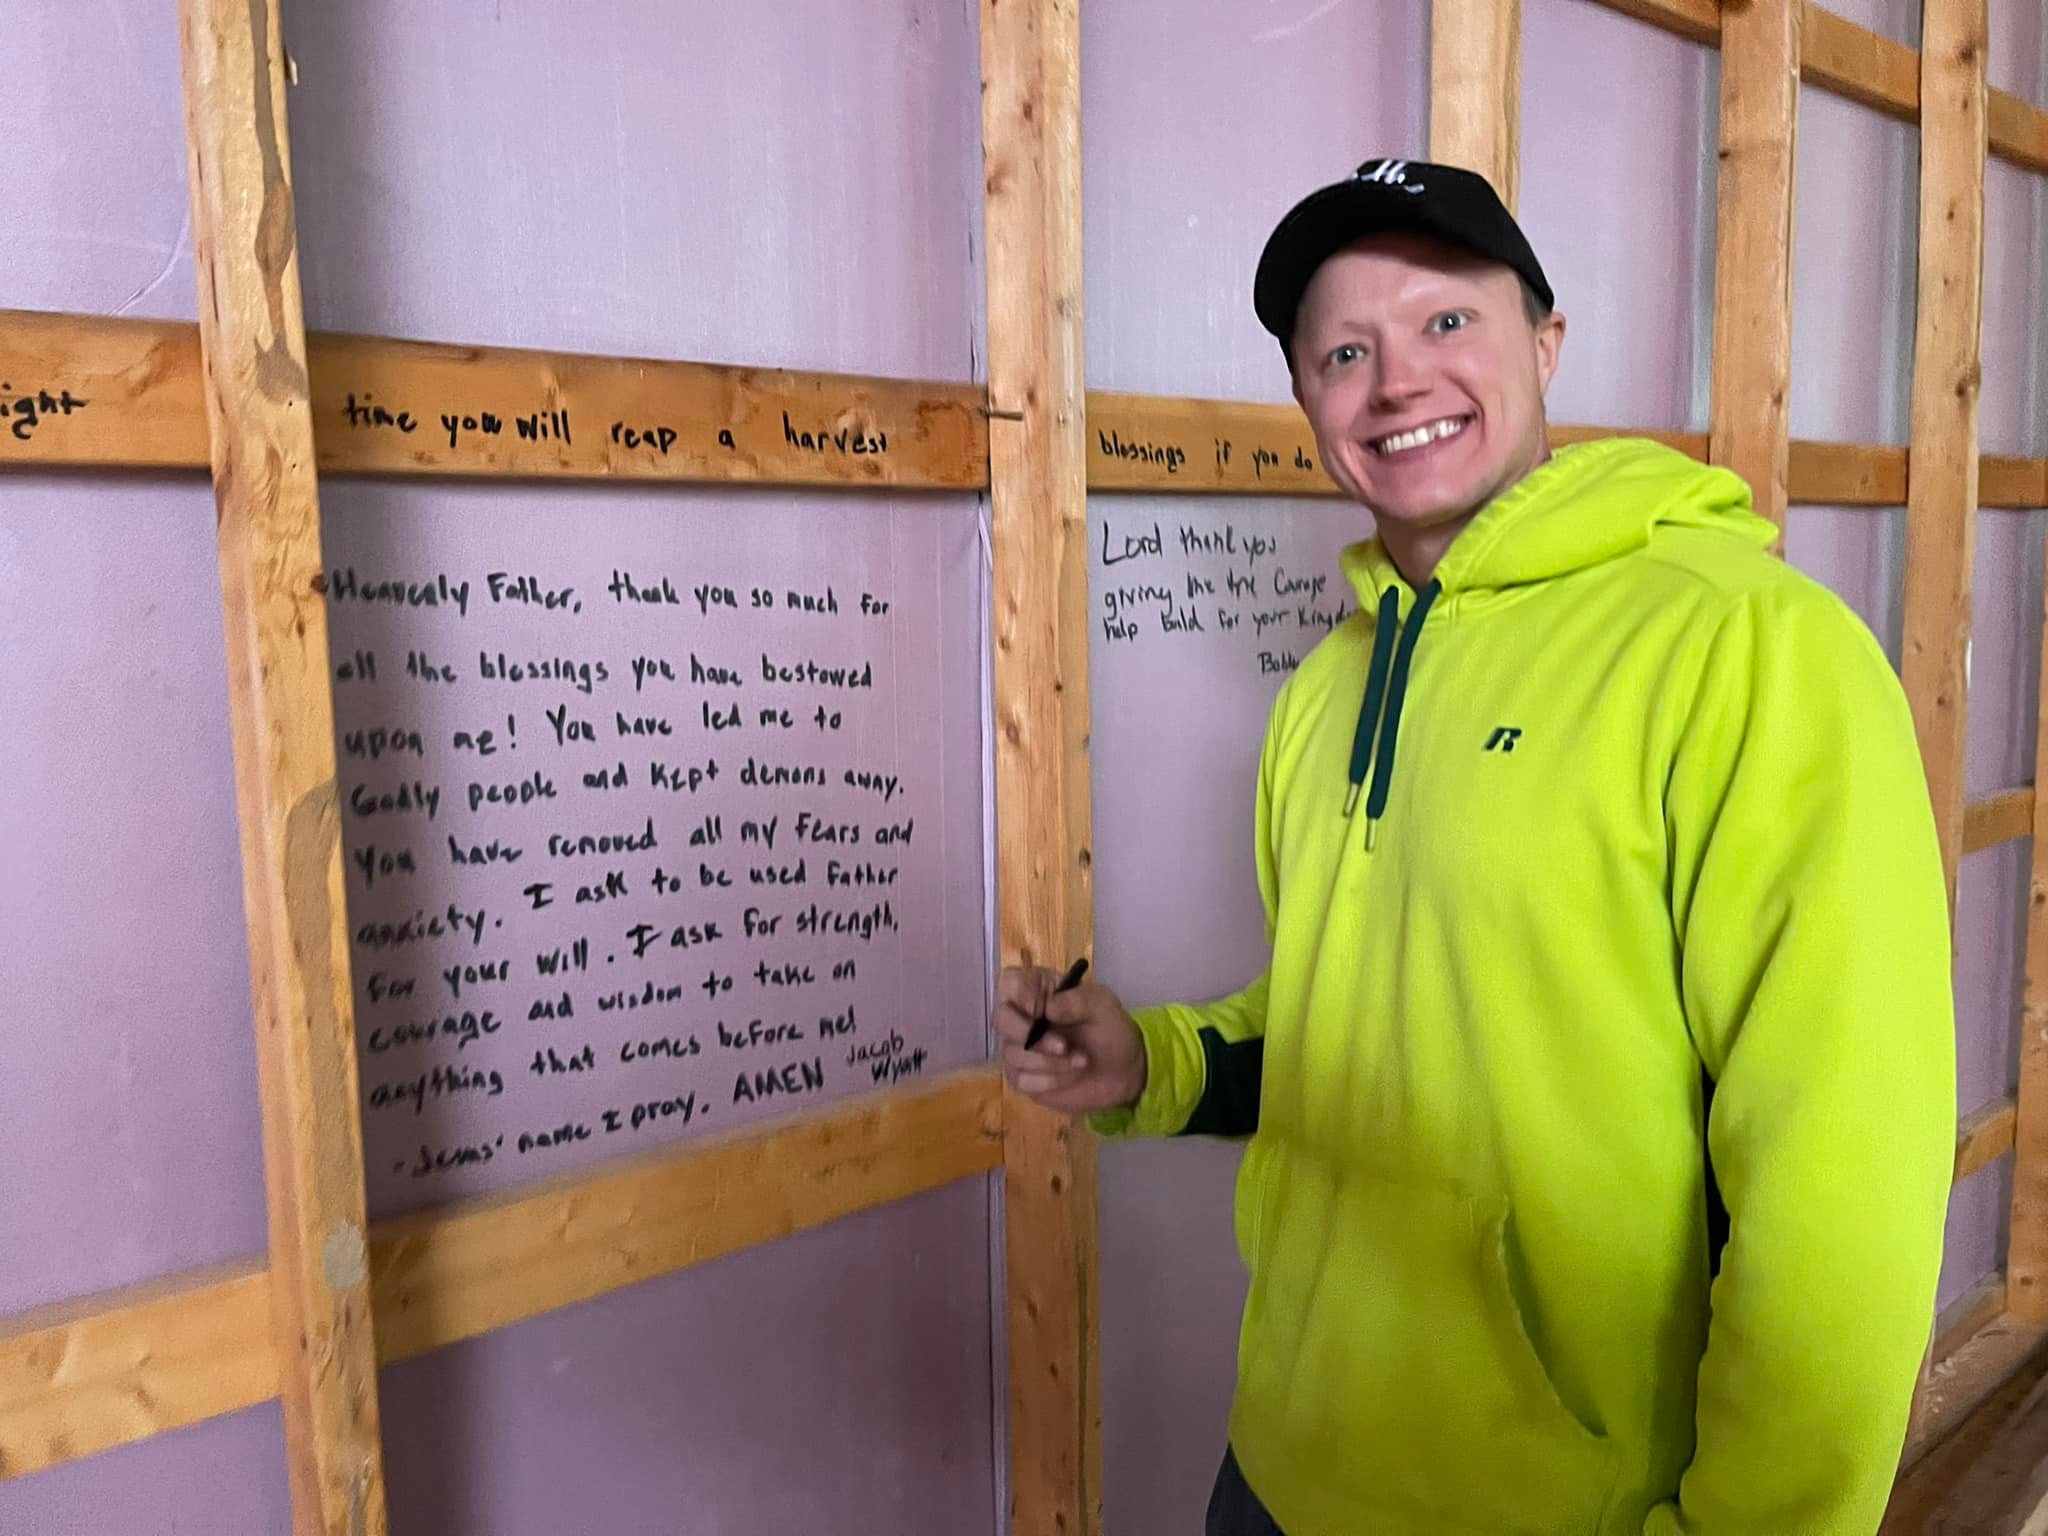 ight time you will reap a harvest blessings if you do
Heavenly Father, thank you so much for
all the blessings you have bestowed
upon me! You have led me to
Godly people and kept demons away.
You have removed all my fears and
anxiety. I ask to be used Father
for your will. I ask for strength,
courage and wisdom to take on
anything that comes before me!
- Jesus' name I pray. AMEN Jacob
Wyatt
Lord thank you
giving me the Courage
help build for your
R